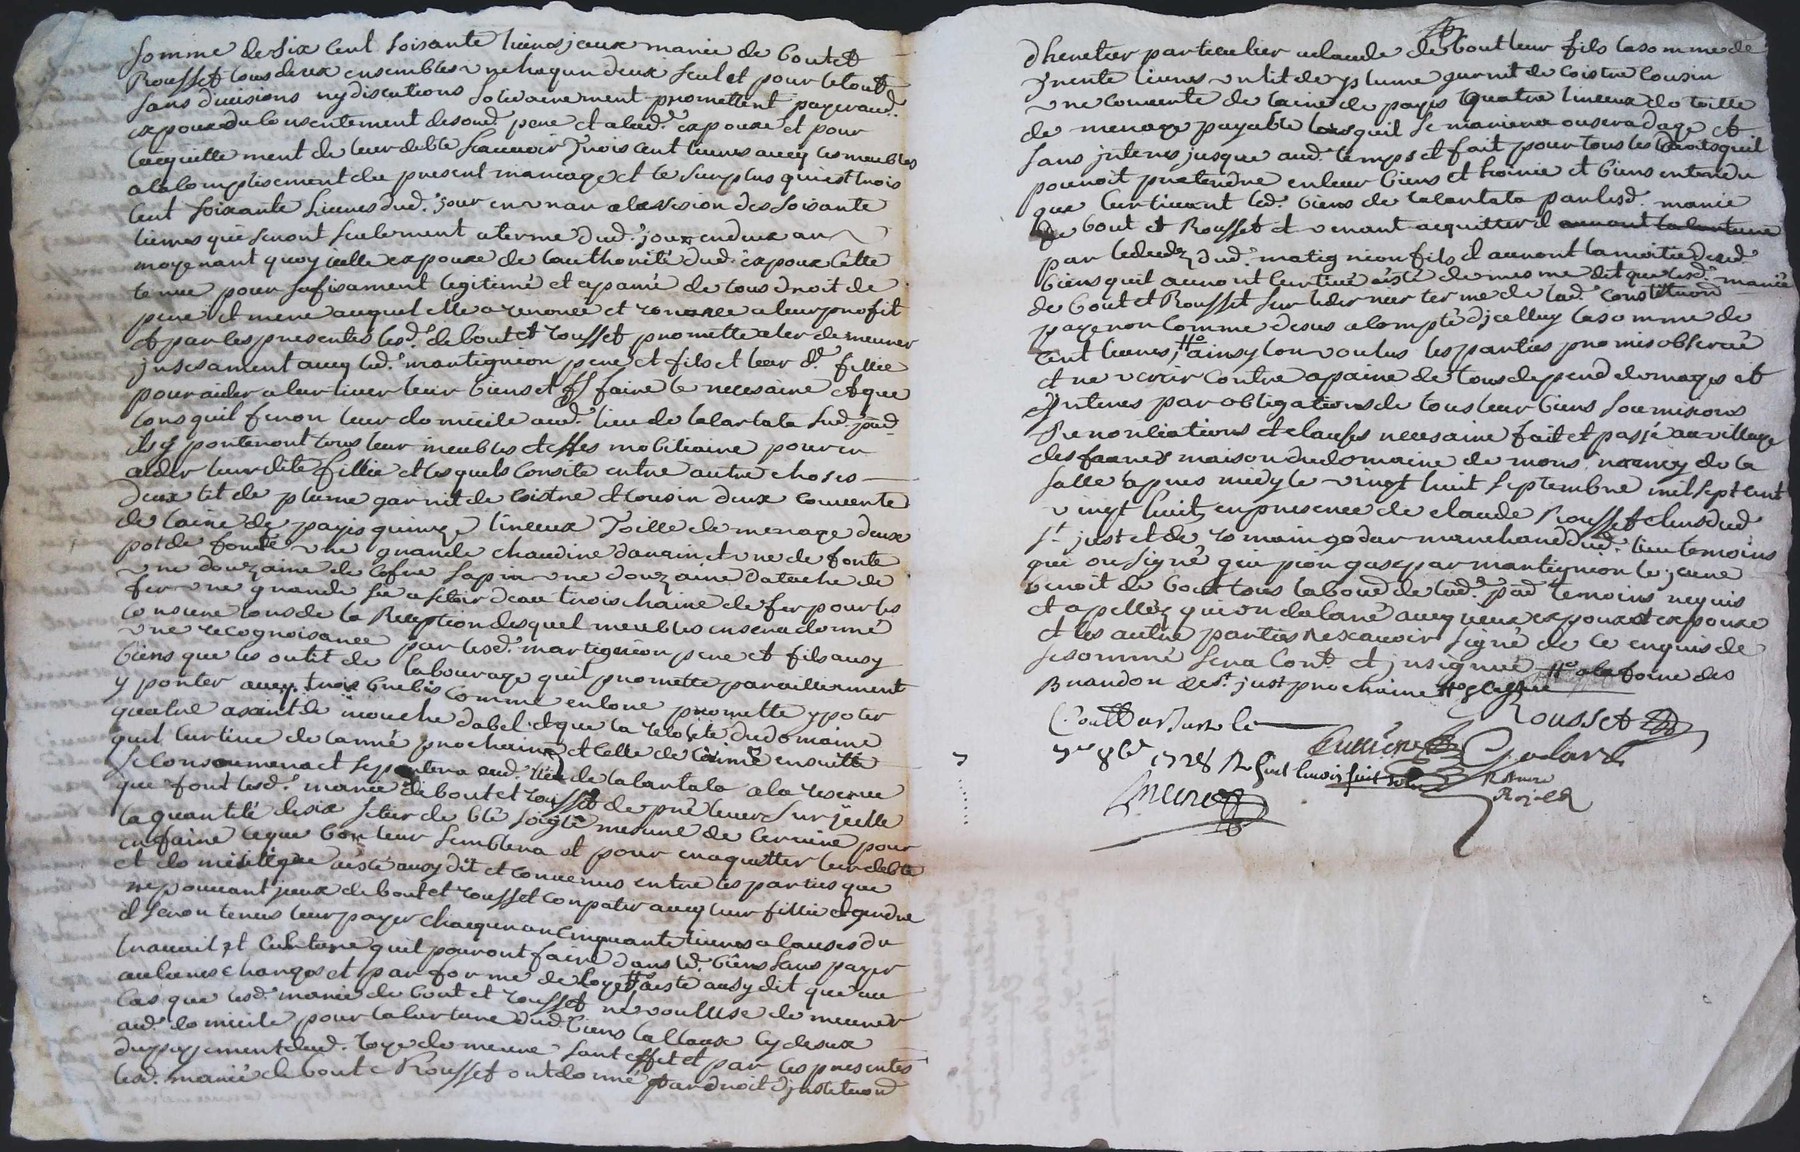 somme de six cent soisante livres jceux mariés de bout et
Rousset tous deux ensembles une chaqun deux seul et pour le tout
sans divisions ny discutions solidairement promettent payer aud.
expoux du consentement desond. pere et alad. expouze et pour
lacquitte ment de leur debte scauvoir Trois cent livres avecq les meubles
alacomplisement du present mariage et le surplus qui est trois
cent soixante livres dud. jour en un an a la resion des soisante
livres qui seront seulement a terme dud. jour en deux an
moyenant quoy celle expouze de lauthorité dud. expoux cette
tenue pour sufisament legitimé et apané de tous droit de
pere et mere auquel elle a renoncé et renonce a leur profit
et par les presentes lesd. de bout et rousset promette aler demeurer
jnsesament avecq led. martignion pere et fils et leur d. fillie
pour aider a curtiver leur biens et y faire le necesaire et que
lors quil feron leur domicile aud. lieu de lalartala sud. parr.
ils y porteront tous leur meubles et effes mobiliaire pour en
aider leurdite fillie et lesquels consite entre autre choses
deux lit de plume garnit de coistre et cousin deux couverte
de laine de payis quinze linceux Toille de menage deux
pot de fonte une grande chaudire dairain et une de fonte
une douzaine de cofre sapin une douzaine datache de
fer une grande sie a scier deau trois chaine de fer pour les
lors de la Reception desquel meubles en sera donné
une recognoisance par lesd. martignion pere et fils ausy
biens que les outit de labourage quil promette pareillement
y porter avecq trois brebis comme encore promette y poter
quatre asaint de mouche dabel et que la recolte dudomaine
quil curtive de lanné prochaine et celle de lanné ensuitte
se consoumera et se portera aud. lieu de lalartala a la reserve
que font lesd. mariés de bout et rousset de prelever sur jcelle
la quantité de six setier de blé soigle mesure de cerviere pour
en faire ce que bon leur semblera et pour enaquitter leur debte
et domestique aesté ausy dit et convenus entre les parties que
ne pouvant jceux de bout et rousset conpatir avecq leur fillie et gendre
il seron tenus leur payer chacque un an cinquante livres a causes du
travail et culture quil pouront faire dans led. biens sans payer
aulcunes charges et par forme de loyer aesté ausy dit que au
cas que lesd. mariés de bout et rousset ne voulluse demeurer
aud. domicile pour la curture dud. biens la clause cy desus
du payement dud. loye demeure sant effet et par les presentes
lesd. mariés de bout e Rousset ont donné par droit djnstitution
dheretier particulier a claude de bout leur fils la somme de
Trente livres un lit de plume garnit de coistre cousin
une couverte de laine de payis quatre linceux de toille
de menage payable lors quil se mariera ou sera dage et
sans jnteres jusque aud. temps et fait pour tous les droits quil
pouroit pretendre en leur biens et hoirie et biens entendu
que curtivant led. biens de lalartala par lesd. mariés
de bout et Rousset et venant aquitter il auront la curture
par ledeudz dud. matignion fils il auront la moitie desd.
biens quil auront curtivé aesté de mesme dit que lesd. mariés
de bout et Rousset sur le dernier terme de lad. constitution
payeron comme desus a compte djcelluy la somme de
cent livres, ainsy lon voulus les parties promis observé
et ne venir contre apaine de tous depend domages et
jnteres par obligations de tous leur biens soumisions
renonciations et clauses necesaire fait et pasé au village
des faures maison du domaine de mons. noirey de la
salle apres midy le vingt huit septembre mil sept cent
vingt huit en presence de claude Rousset clerc dud.
st just et de romain godar marchand dud. lieu temoins
qui on signé gui pion gaspar mantignion le jeune
benoit de bout tous laboud. de lad. parr. temoins requis
et apellez qui on declaré avecq jceux expoux et expouze
et les autre parties ne scavoir signé de ce enquis de
se sommé sera cont. et jnsignué ala foire des
Brandon de st. just prochaine
Rousset
Godard
7re 8bre 1728